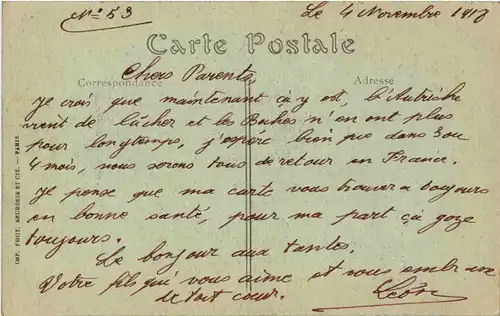 N° 53
Le 4 Novembre 1918
Carte Postale
Chers Parents,
Correspondance
Adresse
Je crois que maintenant ça y est, l'Autriche
vient de lâcher et les Boches n'en ont plus
pour longtemps, j'espère bien que dans 3 ou
4 mois, nous serons tous de retour en France.
Je pense que ma carte vous trouvera toujours
en bonne santé, pour ma part ça gaze
toujours.
Le bonjour aux tantes.
Votre fils qui vous aime et vous embrasse
de tout cœur.
Léon
IMP. PHOT. NEURDEIN ET CIE. — PARIS